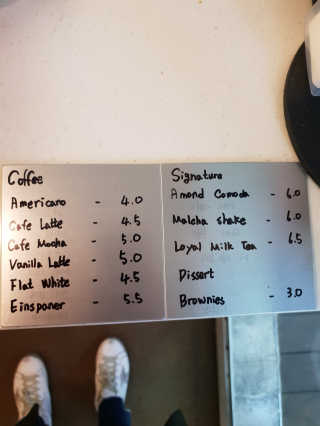 Coffee
Americano - 4.0
Cafe Latte - 4.5
Cafe Mocha - 5.0
Vanilla Latte - 5.0
Flat White - 4.5
Einspaner - 5.5
Signature
Amond Comoda - 6.0
Matcha shake - 6.0
Loyal Milk Tea - 6.5
Dissert
Brownies - 3.0